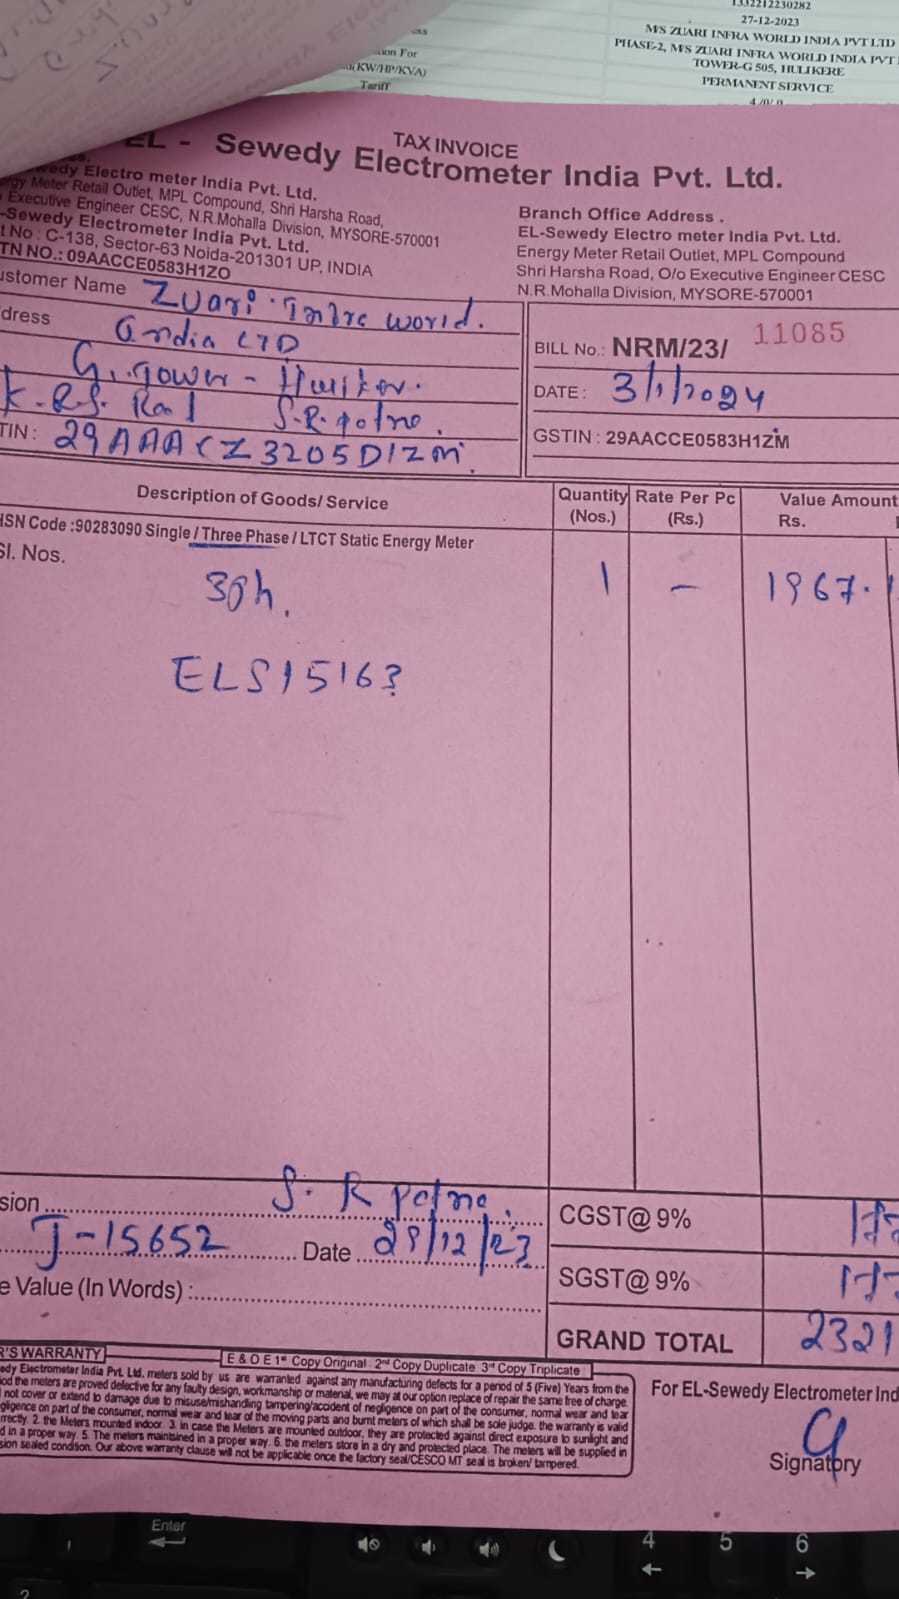 1332212230282
27-12-2023
M/S ZUARI INFRA WORLD INDIA PVT LTD
PHASE-2, M/S ZUARI INFRA WORLD INDIA PVT
TOWER-G 505, HULIKERE
PERMANENT SERVICE
ion For
(KW/HP/KVA)
Tariff
TAX INVOICE
EL - Sewedy Electrometer India Pvt. Ltd.
wedy Electro meter India Pvt. Ltd.
rgy Meter Retail Outlet, MPL Compound, Shri Harsha Road,
Executive Engineer CESC, N.R.Mohalla Division, MYSORE-570001
-Sewedy Electrometer India Pvt. Ltd.
t No : C-138, Sector-63 Noida-201301 UP, INDIA
TN NO.: 09AACCE0583H1ZO
Branch Office Address .
EL-Sewedy Electro meter India Pvt. Ltd.
Energy Meter Retail Outlet, MPL Compound
Shri Harsha Road, O/o Executive Engineer CESC
N.R.Mohalla Division, MYSORE-570001
ustomer Name Zuari world.
dress India LTD
G.
K.R.S. Road S.R.
TIN : 29AAACZ3205D1ZM
BILL No.: NRM/23/ 11085
DATE : 3/1/2024
GSTIN : 29AACCE0583H1ZM
Description of Goods/ Service
Quantity (Nos.)
Rate Per Pc (Rs.)
Value Amount Rs.
HSN Code :90283090 Single / Three Phase / LTCT Static Energy Meter
Sl. Nos.
3Ph. 1 - 1967.
ELS15163
sion S. R
J-15652 Date 28/12/23
e Value (In Words) :
CGST@ 9% 177
SGST@ 9% 177
GRAND TOTAL 2321
R'S WARRANTY
E & O E 1st Copy Original 2nd Copy Duplicate 3rd Copy Triplicate
edy Electrometer India Pvt. Ltd. meters sold by us are warranted against any manufacturing defects for a period of 5 (Five) Years from the
iod the meters are proved defective for any faulty design, workmanship or material, we may at our option replace of repair the same free of charge.
l not cover or extend to damage due to misuse/mishandling tampering/accident of negligence on part of the consumer, normal wear and tear
gligence on part of the consumer, normal wear and tear of the moving parts and burnt meters of which shall be sole judge. the warranty is valid
rrectly. 2. the Meters mounted indoor. 3. In case the Meters are mounted outdoor, they are protected against direct exposure to sunlight and
d in a proper way. 5. The meters maintsined in a proper way. 6. the meters store in a dry and protected place. The meters will be supplied in
sion sealed condition. Our above warranty clause will not be applicable once the factory seal/CESCO MT seal is broken/ tampered.
For EL-Sewedy Electrometer Ind
Signatory
Enter
4 5 6